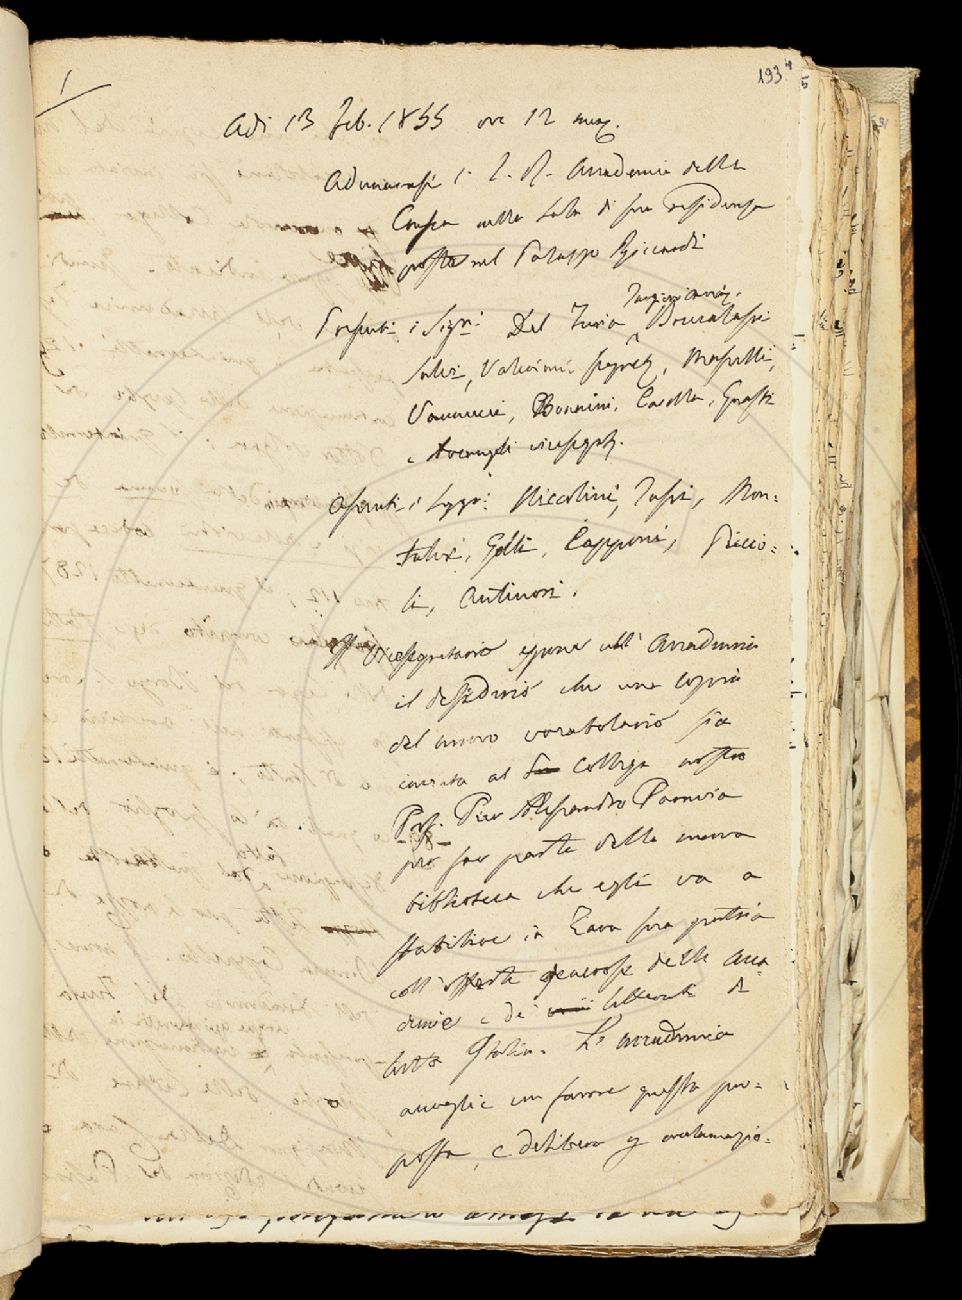 1
193
Adì 13 Feb. 1855 ore 12 mer.
Adunavasi l' I. e R. Accademia della
Crusca nella Sala di sua residenza
posta nel Palazzo Riccardi
Presenti i Sigri Del Furia Bruciassi
Salvi, Valeriani Segret., Masselli,
Vannucci, Bonaini, Casella, Grassi
e Arcangeli vicesegr.
Assenti i Siggi: Niccolini, Tassi, Mon=
talvi, Gelli, Capponi, Puccio=
ti, Antinori.
Il Vicesegretario espone all' Accademia
il desiderio che una copia
del nuovo vocabolario sia
inviata al Collega nostro
Prof. Pier Alessandro Paravia
per far parte della nuova
biblioteca che egli va a
stabilire in Zara sua patria
coll' offerte generose delle Acca=
demie e de' letterati di
tutta Italia. L' accademia
accoglie con favore questa pro=
posta, e delibera per acclamazio=